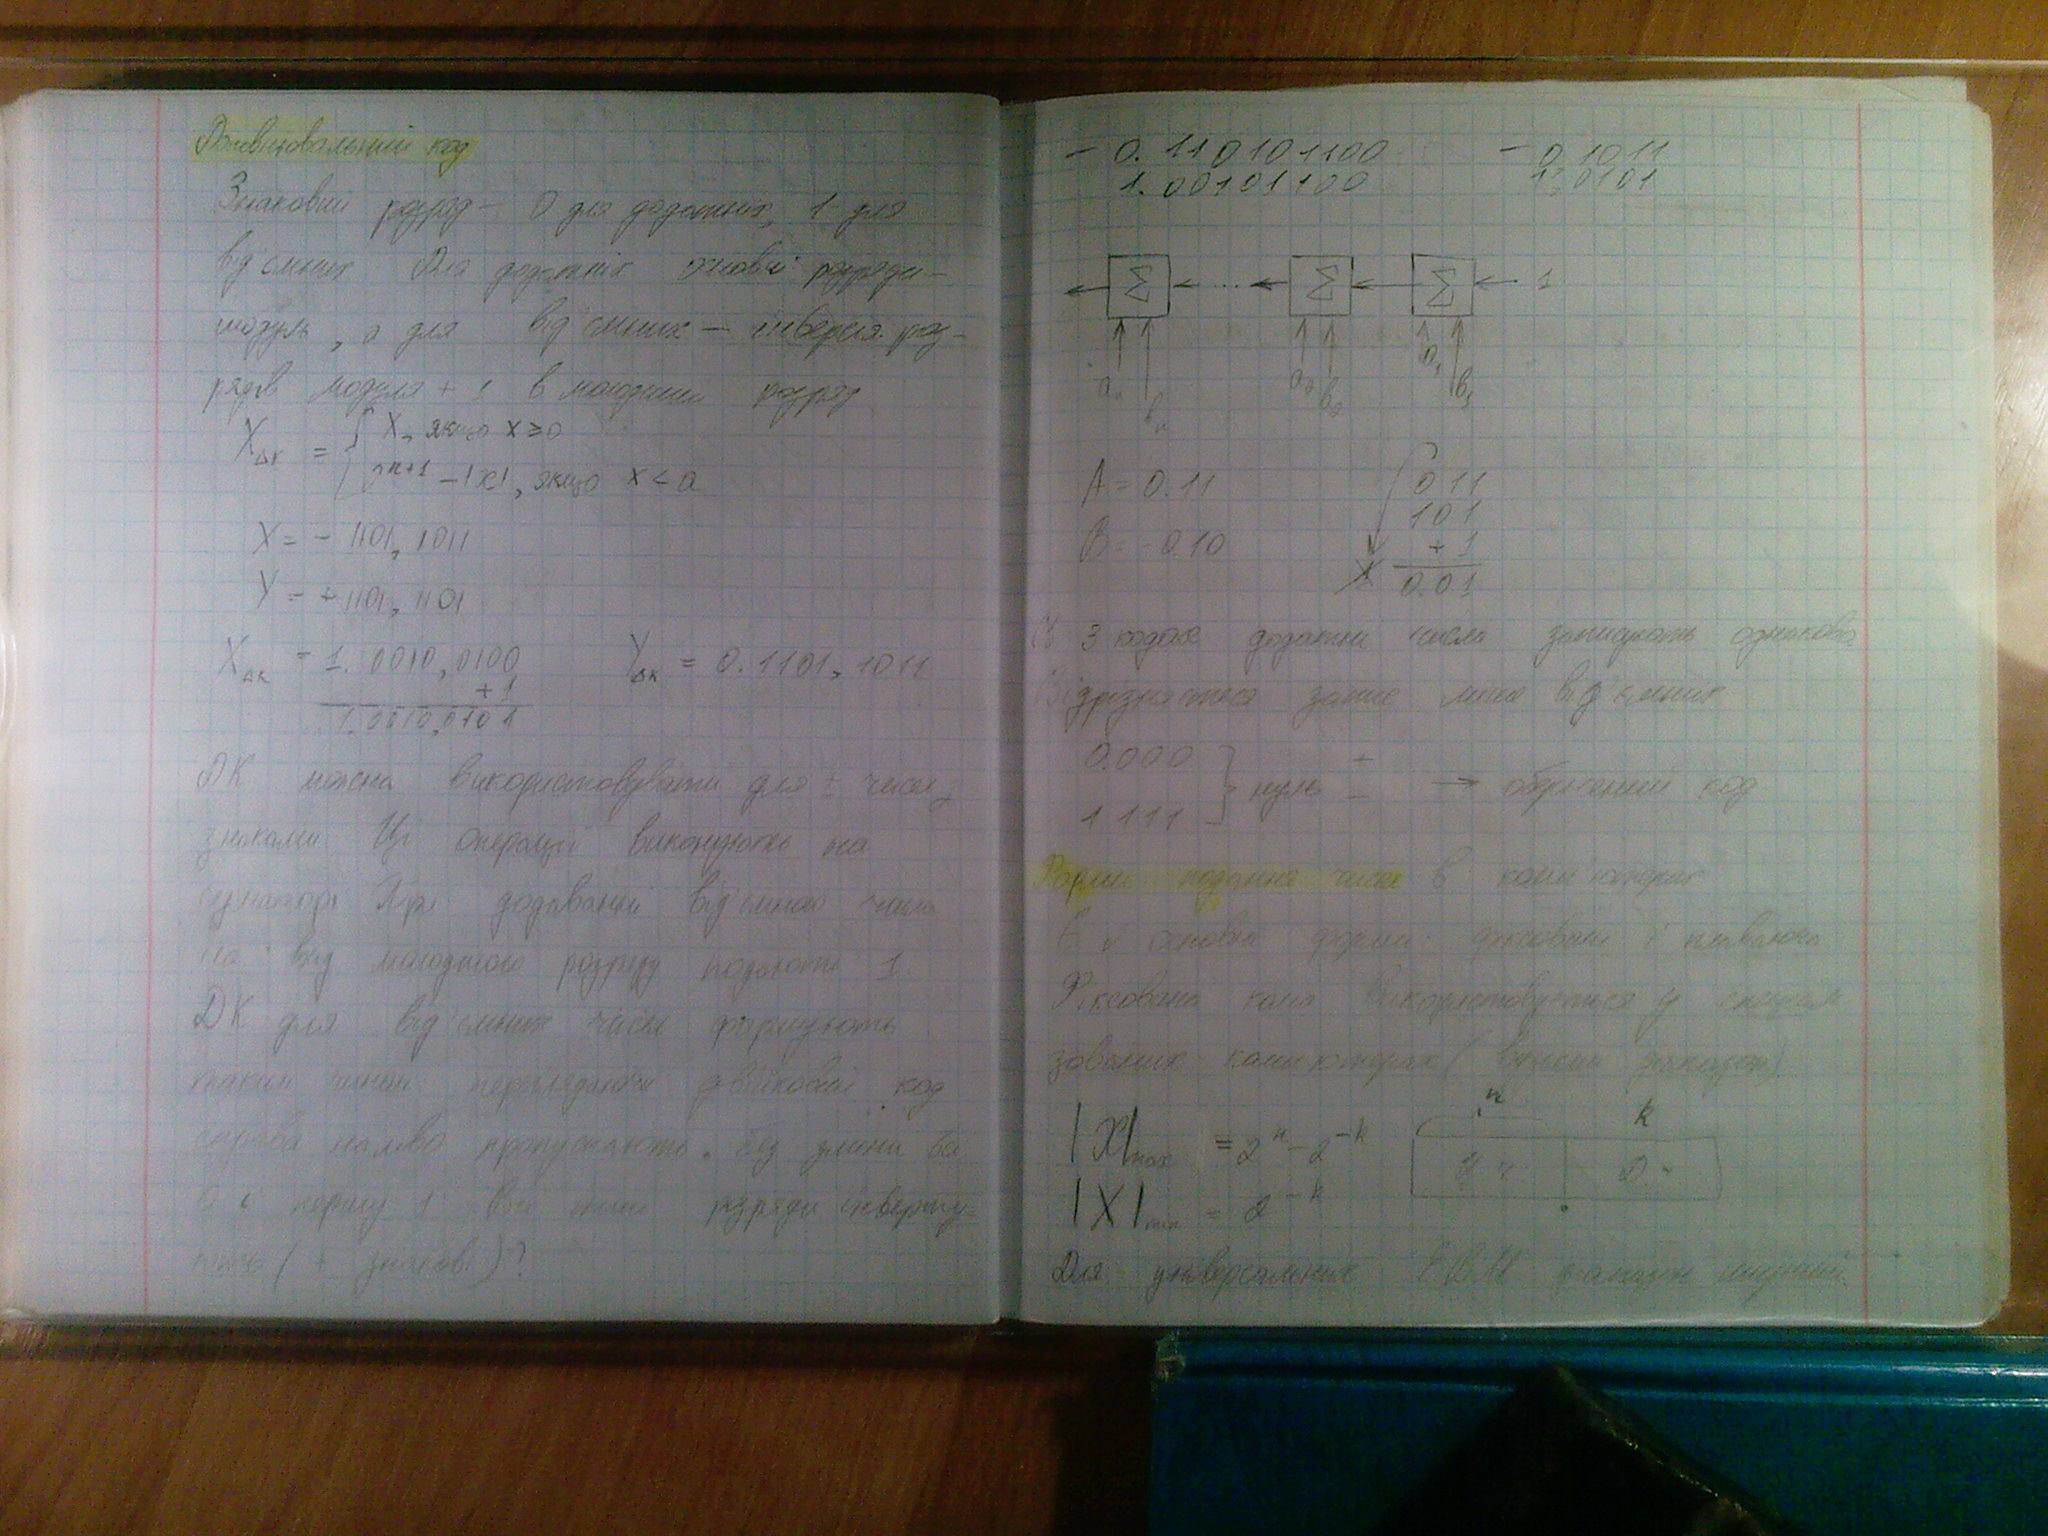 Доповнювальний код
Знаковий розряд – 0 для додатніх, 1 для
від'ємних Для додатніх основні розряди –
модуль, а для від'ємних – інверсія роз-
рядів модуля + 1 в молодший розряд
Xдк = { X, якщо x ≥ 0
2^(n+1) – |x|, якщо x < 0
X = – 1101, 1011
Y = + 1101, 1101
Xдк = 1. 0010, 0100
+ 1
1. 0010, 0101
Yдк = 0. 1101, 1011
ДК можна використовувати для ± чисел з
знаками Ці операції виконують на
суматорі При додаванні від'ємного числа
на вхід молодшого розряду подають 1
ДК для від'ємних чисел формують
таким чином переглядаючи двійковий код
справа наліво пропускають без зміни всі
0 і першу 1 Всі інші розряди інверту-
ють (+ знакові)?
– 0. 110101100
1. 00101100
– 0 1011
1. 0101
← Σ ← ... ← Σ ← Σ ← 1
A = 0.11
B = -0.10
0 11
1 01
+ 1
0.01
З кодах додатні числа записують однаково
Відрізняється запис лише від'ємних
0.000
1 111
} нуль + – → обернений код
Форми подання чисел в комп'ютерах
Є 2 основні форми: фіксована і плаваюча
Фіксована кома використовується у спеціалі
зованих комп'ютерах (
|X|max = 2^n – 2^-k
n k
|X|min = 2^-k
Для універсальних ЕОМ діапазон